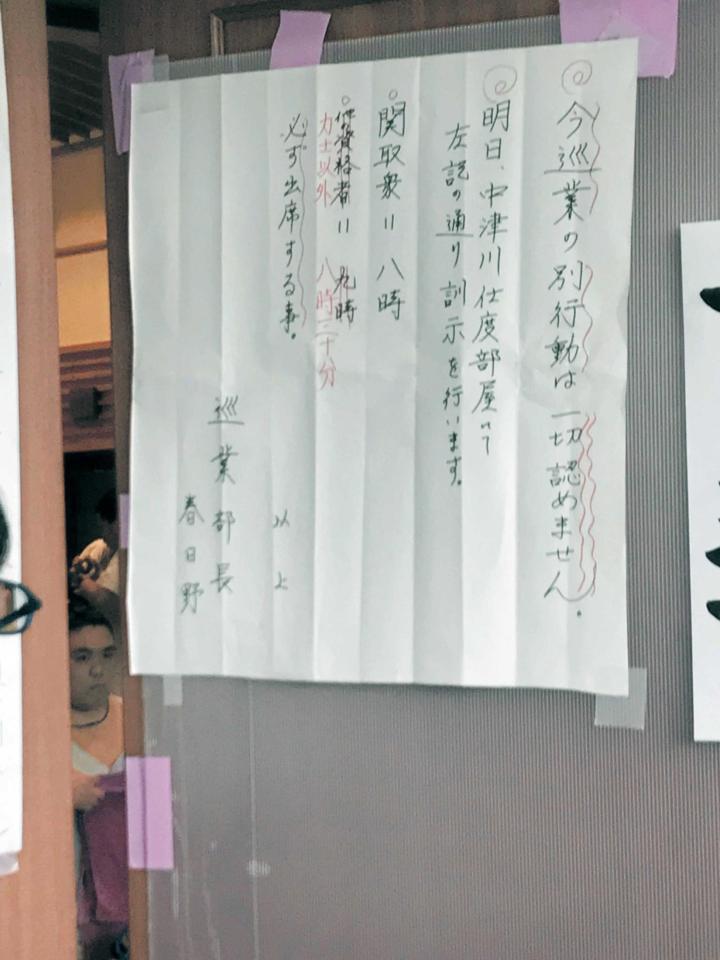 ◎今巡業の別行動は一切認めません.
◎明日、中津川仕度部屋にて
左記の通り訓示を行います.
○関取衆=八時
○他資格者=九時
力士以外 八時三十分
必ず出席する事.
以上
巡業部長
春日野